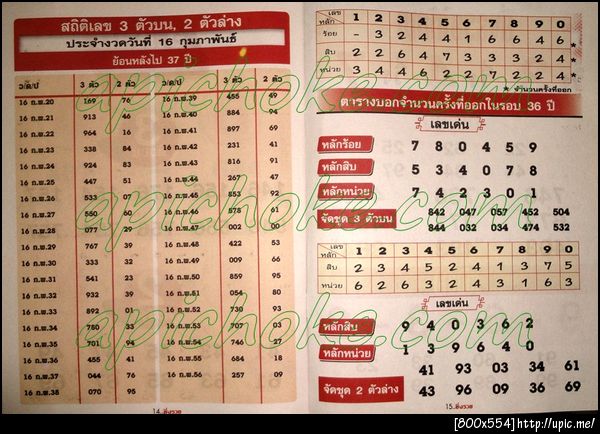 สถิติเลข 3 ตัวบน, 2 ตัวล่าง
ประจำงวดวันที่ 16 กุมภาพันธ์
ย้อนหลังไป 37 ปี
ว/ด/ป 3 ตัว 2 ตัว ว/ด/ป 3 ตัว 2 ตัว
16 ก.พ.20 169 76 16 ก.พ.39 455 49
16 ก.พ.21 913 46 16 ก.พ.40 894 94
16 ก.พ.22 964 16 16 ก.พ.41 897 69
16 ก.พ.23 338 84 16 ก.พ.42 231 41
16 ก.พ.24 924 83 16 ก.พ.43 816 91
16 ก.พ.25 447 51 16 ก.พ.44 267 47
16 ก.พ.26 533 07 16 ก.พ.45 853 92
16 ก.พ.27 550 60 16 ก.พ.46 578 61
16 ก.พ.28 077 29 16 ก.พ.47 002 00
16 ก.พ.29 767 39 16 ก.พ.48 422 53
16 ก.พ.30 333 32 16 ก.พ.49 009 66
16 ก.พ.31 541 23 16 ก.พ.50 859 95
16 ก.พ.32 932 39 16 ก.พ.51 054 80
16 ก.พ.33 892 01 16 ก.พ.52 730 93
16 ก.พ.34 780 33 16 ก.พ.53 707 03
16 ก.พ.35 701 94 16 ก.พ.54 746 27
16 ก.พ.36 455 41 16 ก.พ.55 684 18
16 ก.พ.37 044 76 16 ก.พ.56 257 09
16 ก.พ.38 070 95
14..ยิ่งรวย
เลข
หลัก 1 2 3 4 5 6 7 8 9 0
ร้อย - 3 2 4 4 1 6 6 4 6 *
สิบ 2 3 6 4 7 2 3 3 2 4 *
หน่วย 3 4 4 6 2 2 7 1 3 4 *
* จำนวนครั้งที่ออก
ตารางบอกจำนวนครั้งที่ออกในรอบ 36 ปี
เลขเด่น
หลักร้อย 7 8 0 4 5 9
หลักสิบ 5 3 4 0 7 8
หลักหน่วย 7 4 2 3 0 1
จัดชุด 3 ตัวบน 842 047 057 452 504
844 032 034 474 532
เลข
หลัก 1 2 3 4 5 6 7 8 9 0
สิบ 2 3 4 5 2 4 1 3 7 5
หน่วย 6 2 6 3 2 4 3 1 6 3
เลขเด่น
หลักสิบ 9 4 0 3 6 2
หลักหน่วย 1 3 9 6 4 0
จัดชุด 2 ตัวล่าง 41 93 03 34 61
43 96 09 36 69
15..ยิ่งรวย
apichoke.com
apichoke.com
apichoke.com
apichoke.com
[800x554] http://upic.me/